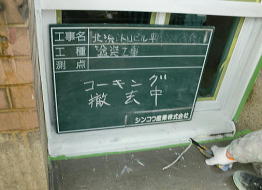 工事名 北浜トリビル
工種 塗装工事
測点
コーキング
撤去中
シンコウ産業株式会社